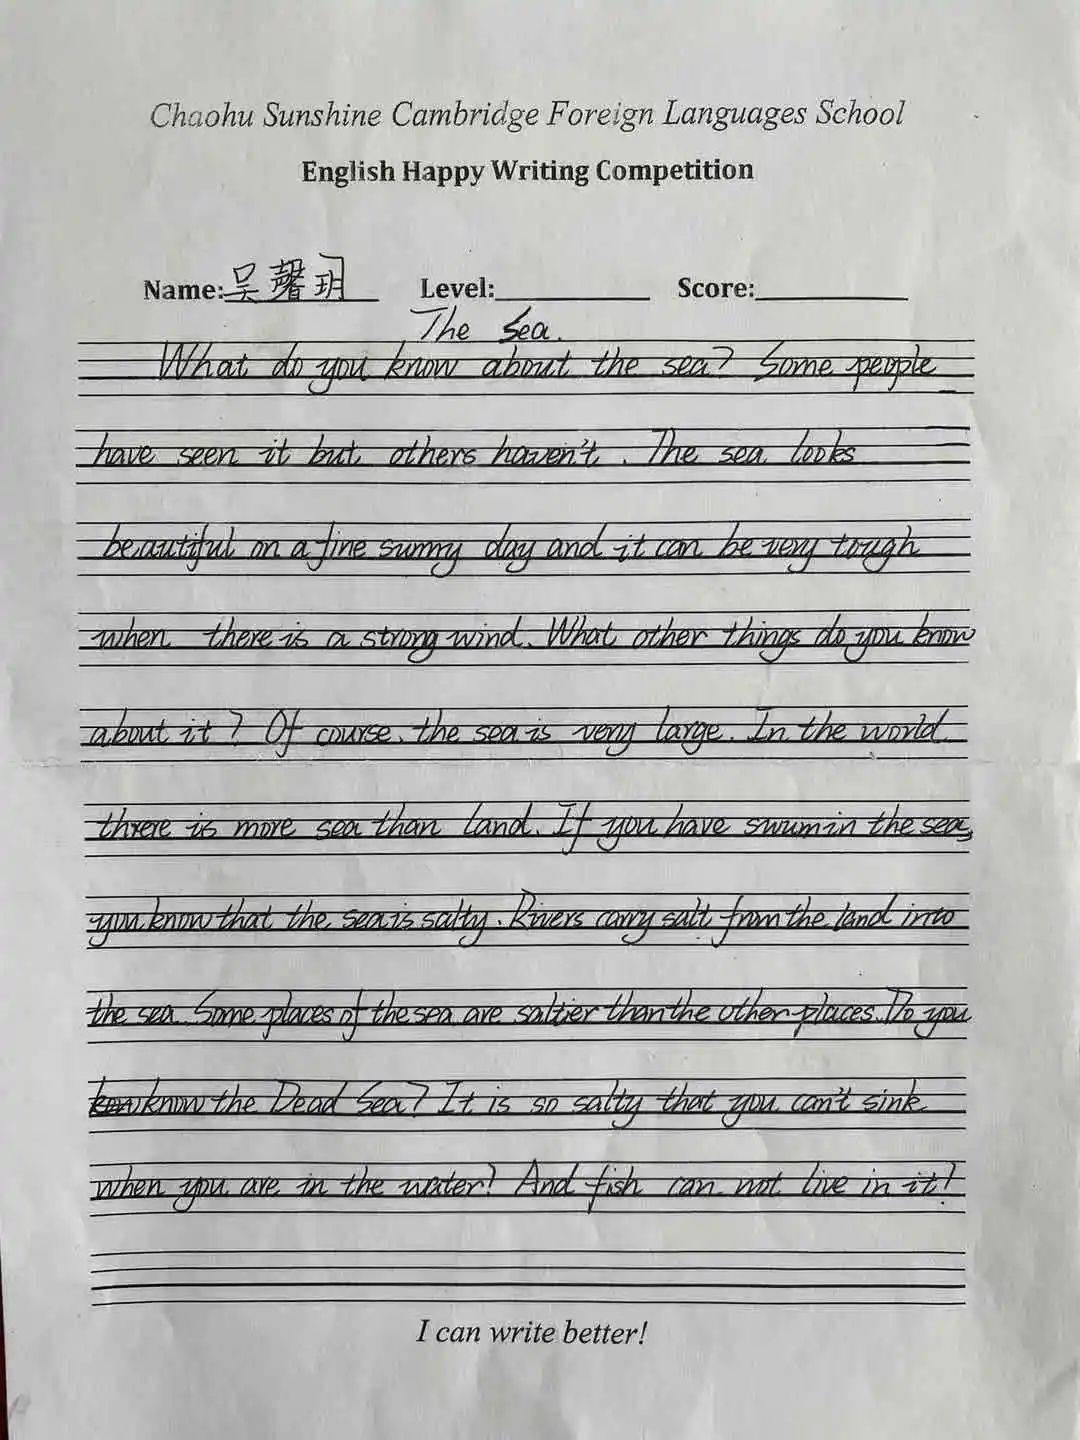 Chaohu Sunshine Cambridge Foreign Languages School
English Happy Writing Competition
Name: 吴馨玥 Level: Score:
The Sea.
What do you know about the sea? Some people
have seen it but others haven't. The sea looks
beautiful on a fine sunny day and it can be very tough
when there is a strong wind. What other things do you know
about it? Of course, the sea is very large. In the world
there is more sea than land. If you have swum in the sea,
you know that the sea is salty. Rivers carry salt from the land into
the sea. Some places of the sea are saltier than the other places. Do you
know the Dead Sea? It is so salty that you can't sink
when you are in the water! And fish can not live in it!
I can write better!